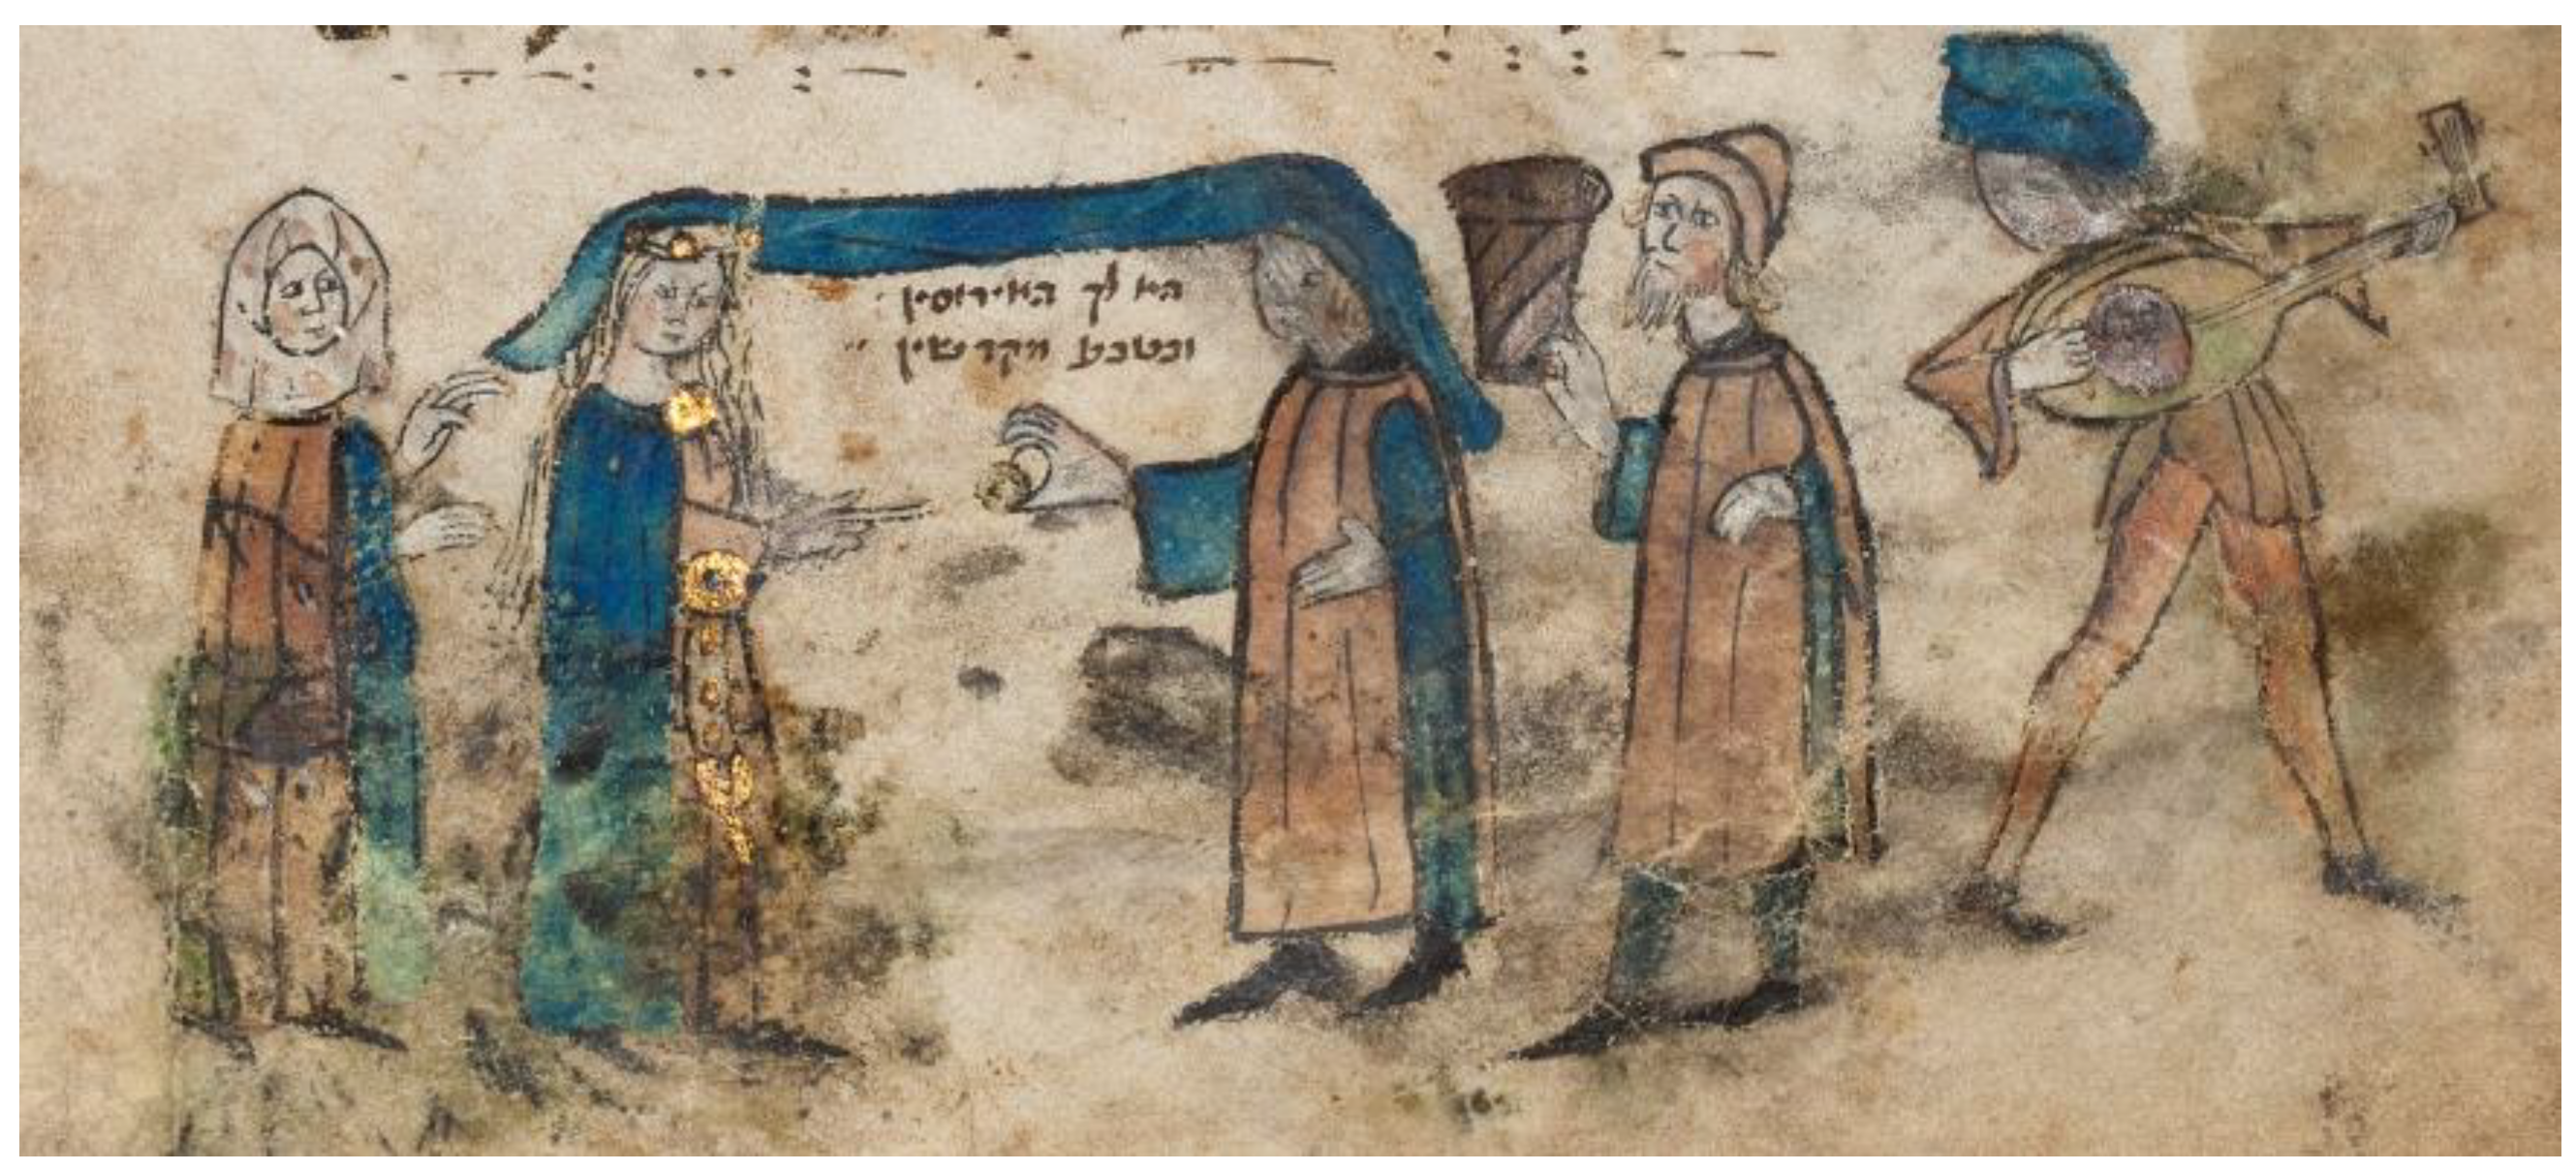 הא לך האירוסין :
ובטבע מקדשין "